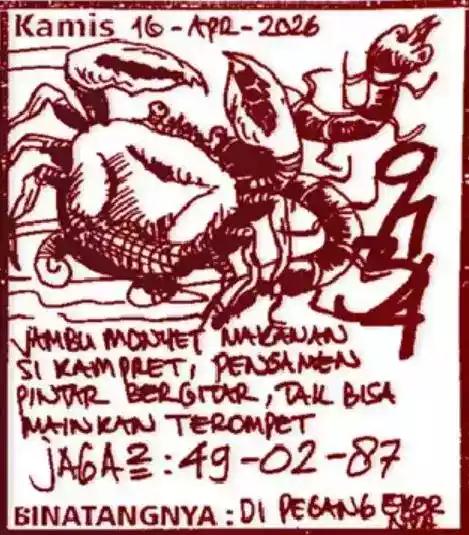 Kamis 16-APR-2026
JAMBU MONYET MAKANAN
SI KAMPRET, PENGAMEN
PINTAR BERGITAR, TAK BISA
MAINKAN TEROMPET
JAGA2 : 49-02-87
BINATANGNYA : DI PEGANG EKOR
NYA